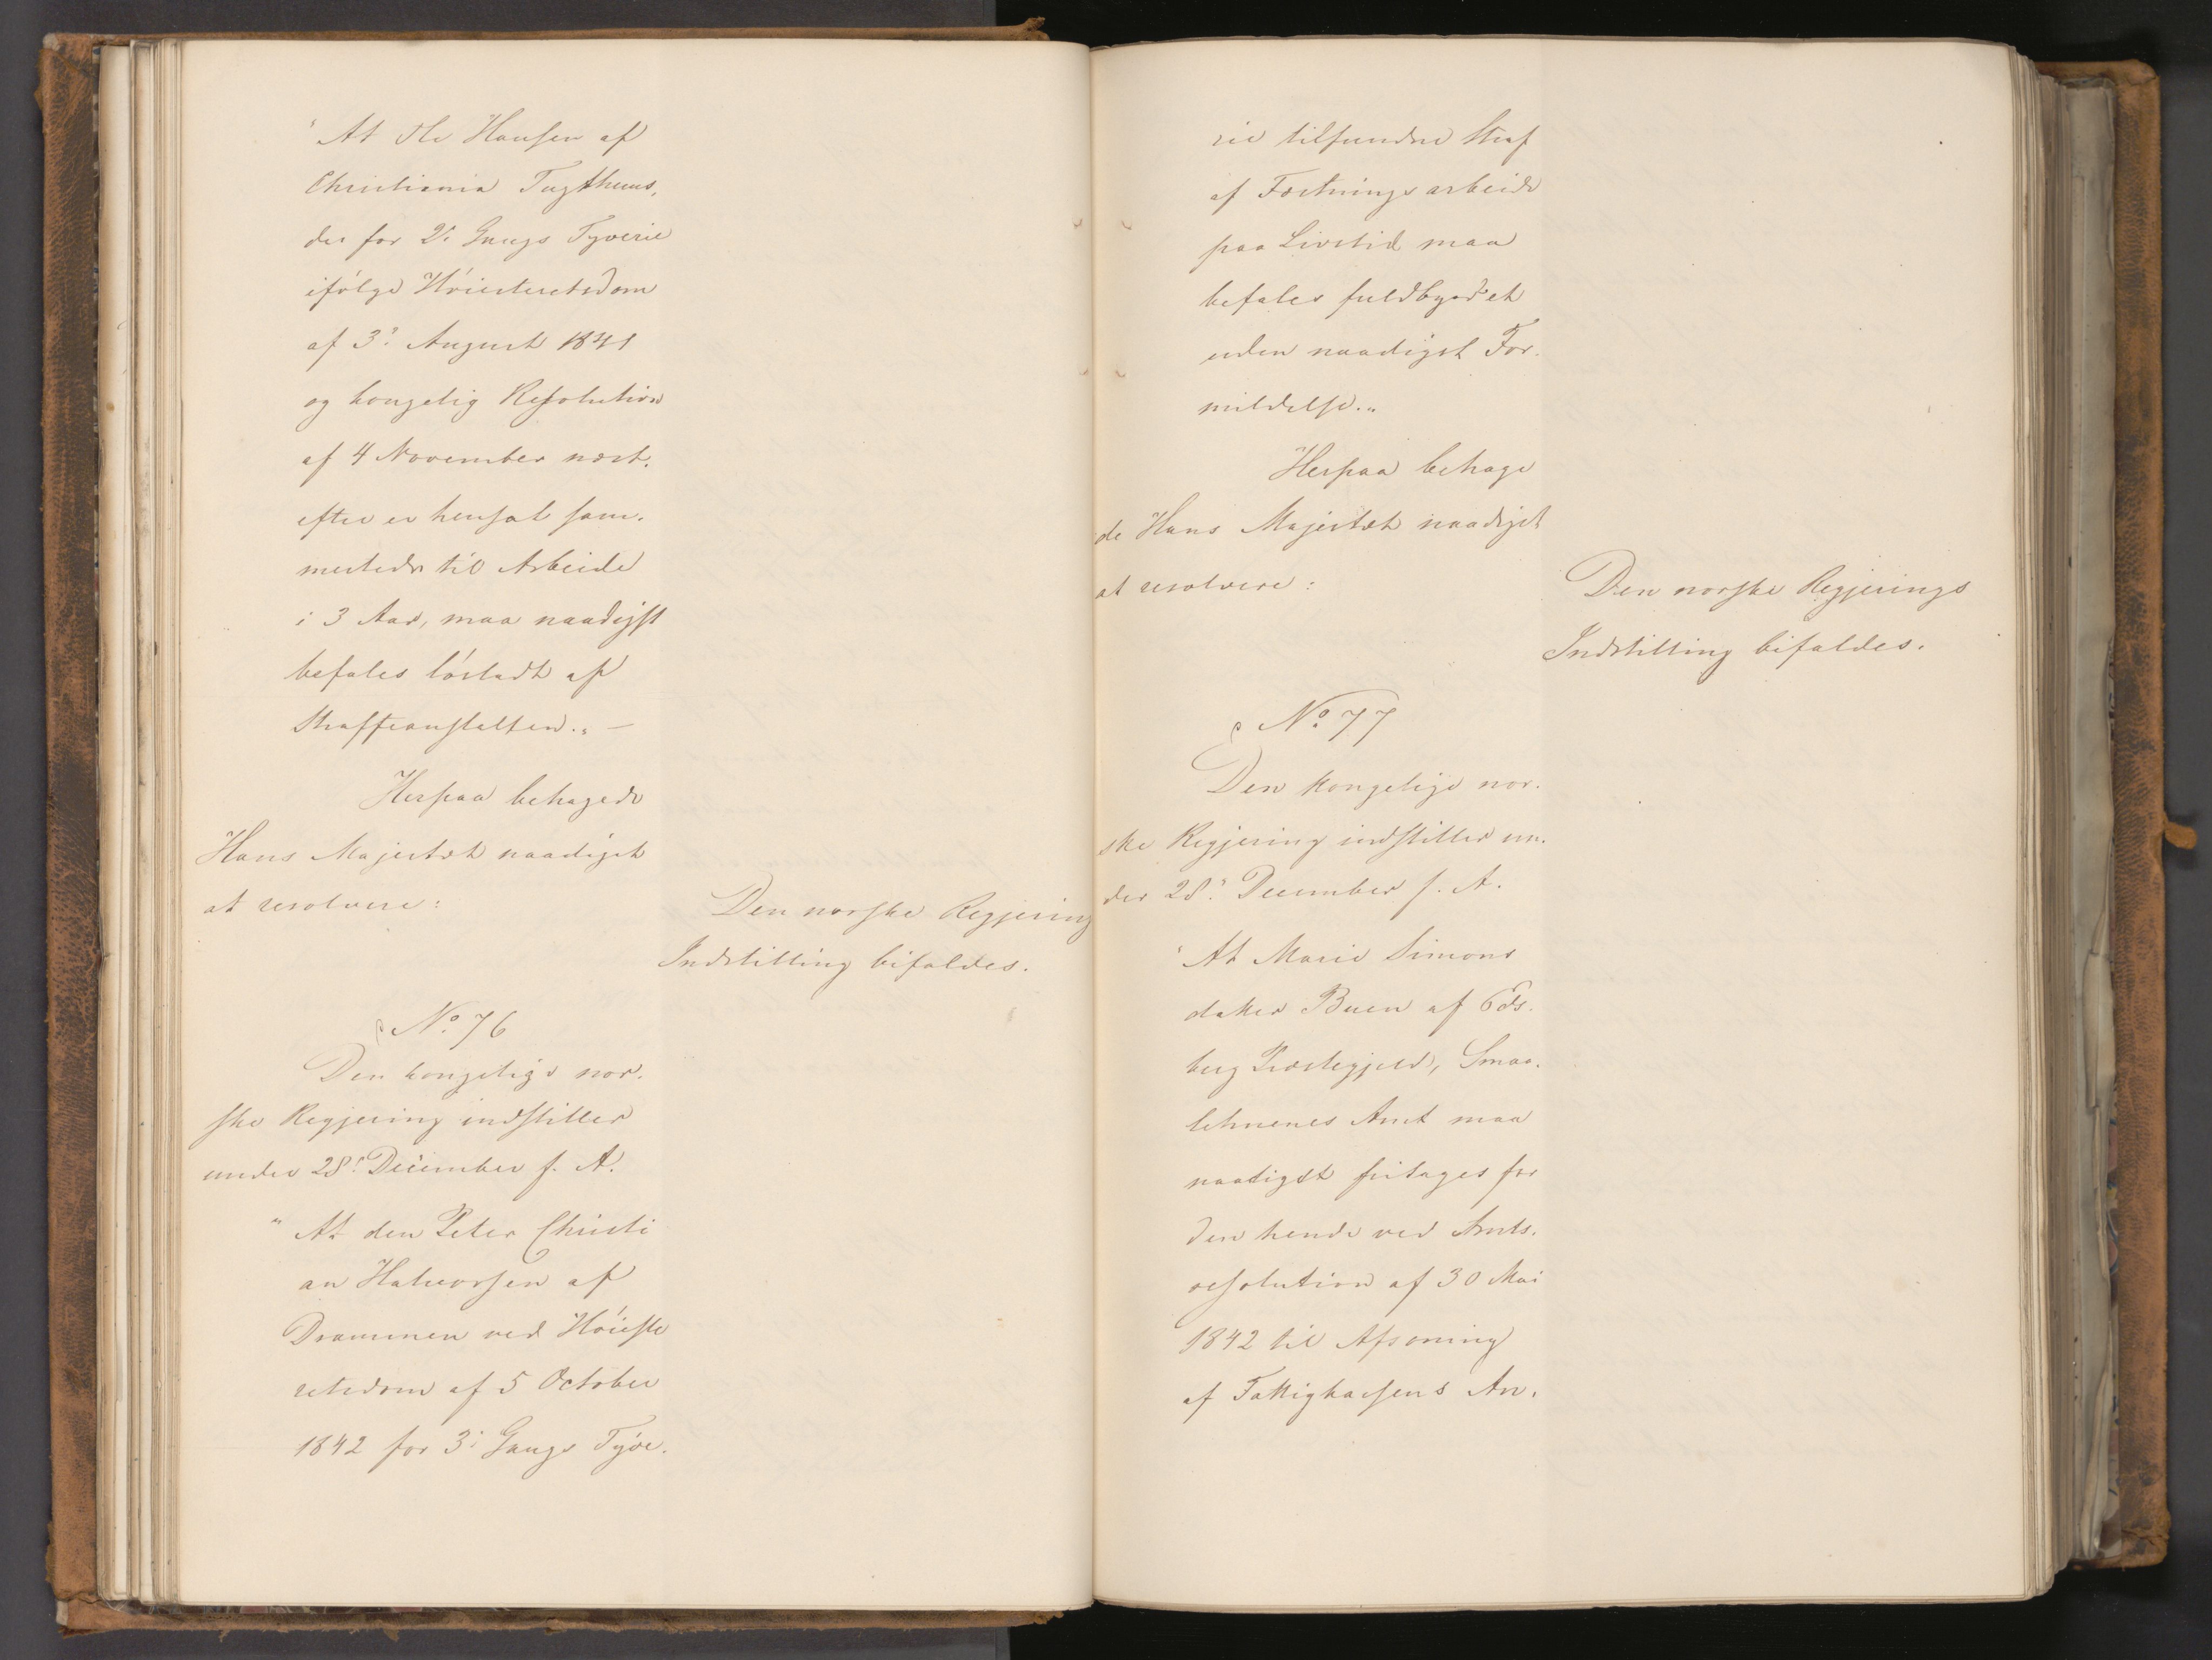 "At Ole Hansen af
Christiania Tugthuus,
der for 2. Gangs Tyverie
ifölge Höiesteretsdom
af 3. August 1841
og kongelig Resolution
af 4 November næst-
efter er hensat sam-
mesteds til Arbeide
i 3 Aar, maa naadigst
befales lösladt af
Straffeanstalten." –
Herpaa behagede
Hans Majestæt naadigst
at resolvere:
Den norske Regjering
Indstilling bifaldes.
No. 76
Den kongelige nor-
ske Regjering indstiller
under 28. December f. A.
"At den Peter Christi
an Halvorsen af
Drammen ved Höieste
retsdom af 5 October
1842 for 3. Gangs Tyve-
rie tilfundne Straf
af Fæstningsarbeide
paa Livstid maa
befales fuldbyrdet
uden naadigst For-
mildelse."
Herpaa behage
de Hans Majestæt naadigst
at resolvere:
Den norske Regjerings
Indstilling bifaldes.
No. 77
Den kongelige nor-
ske Regjering indstiller un-
der 28. December f. A.
"At Marie Simons
datter Buen af Eids-
berg Præstegjeld, Smaa-
lehnenes Amt maa
naadigst fritages for
den hende ved Amts-
resolution af 30 Mai
1842 til Afsoning
af Fattigkassens An-